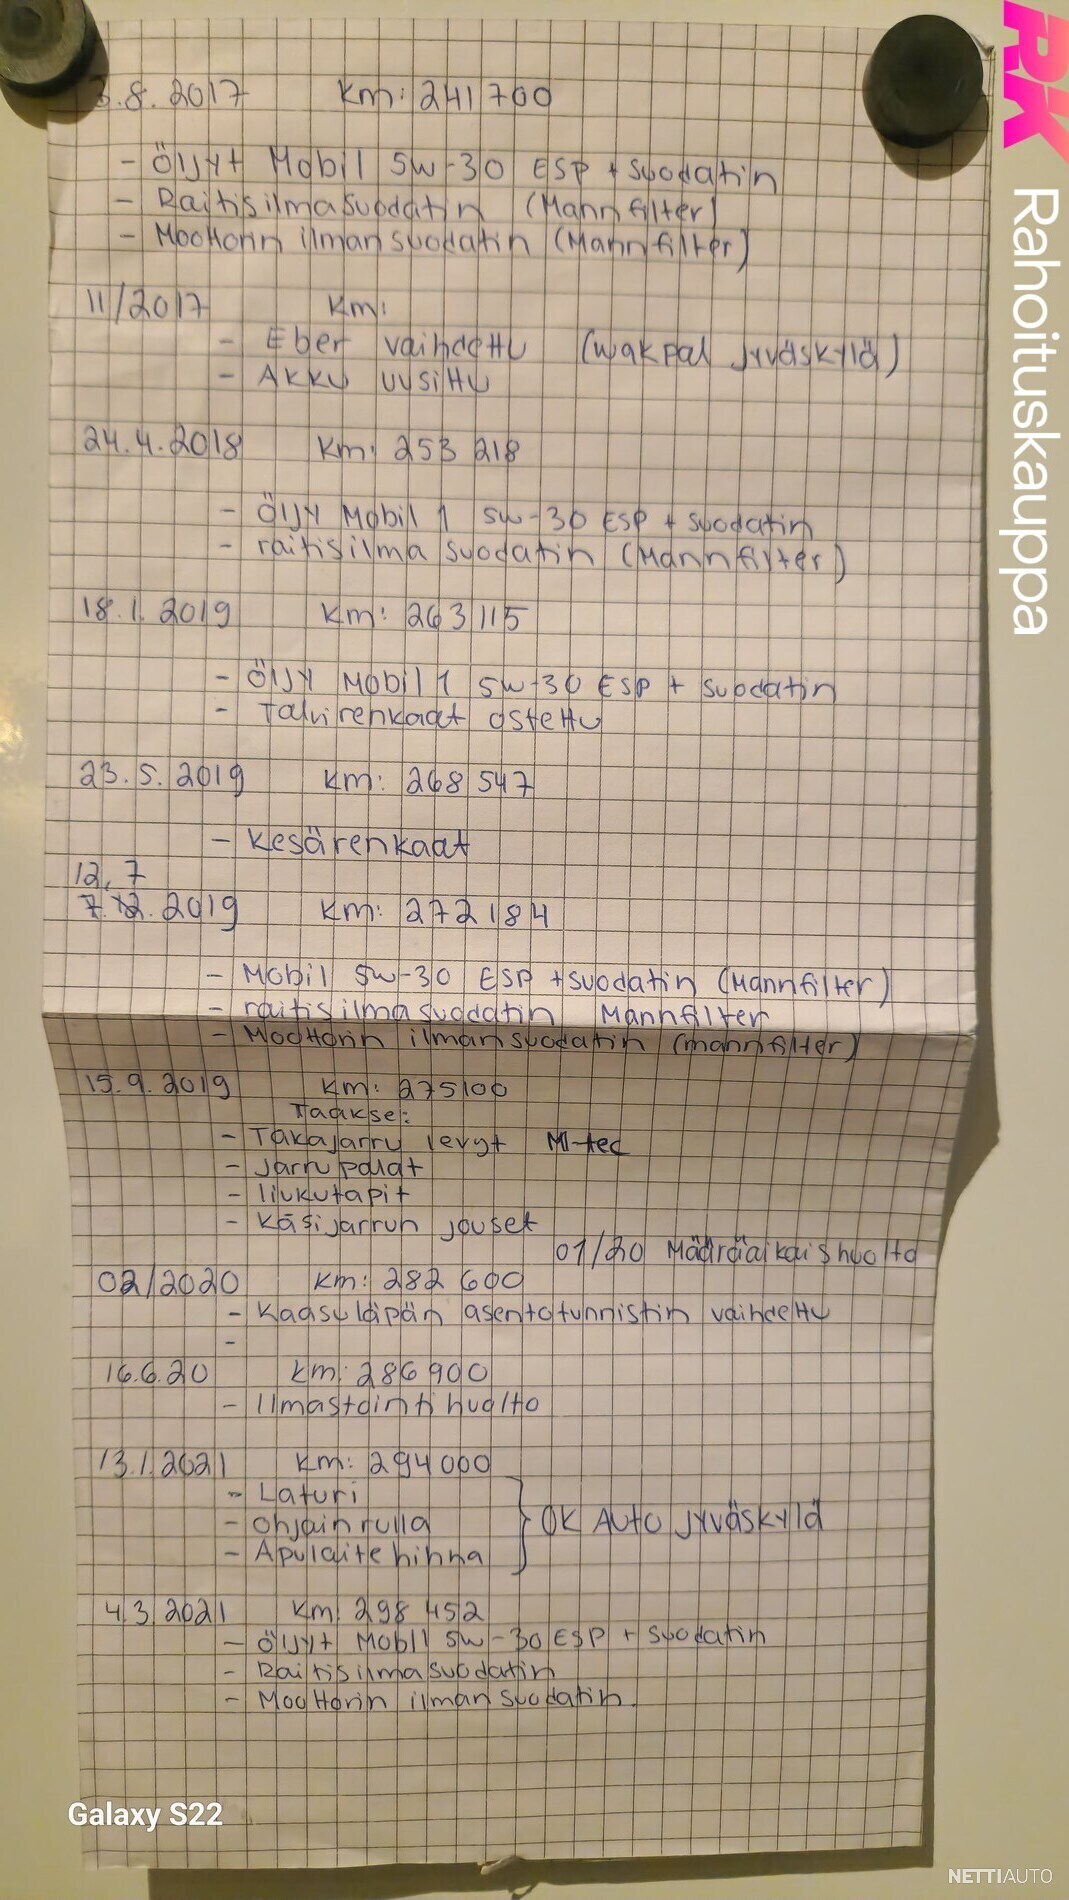 .8. 2017 Km: 241 700
- Öljyt Mobil 5w-30 ESP + suodatin
- Raitisilmasuodatin (Mannfilter)
- Moottorin ilmansuodatin (Mannfilter)
11/2017 Km:
- Eber vaihdettu (wakpal Jyväskylä)
- Akku uusittu
24.4.2018 Km: 253 218
- Öljy Mobil 1 5w-30 ESP + suodatin
- raitisilma suodatin (Mannfilter)
18.1.2019 Km: 263 115
- Öljy Mobil 1 5w-30 ESP + suodatin
- Talvirenkaat ostettu
23.5.2019 Km: 268 547
- Kesärenkaat
12.7
7.12.2019 Km: 272 184
- Mobil 5w-30 ESP + suodatin (Mannfilter)
- raitisilmasuodatin Mannfilter
- Moottorin ilmansuodatin (mannfilter)
15.9.2019 Km: 275100
Taakse:
- Takajarru levyt M-tec
- Jarrupalat
- liukutapit
- Käsijarrun jouset
01/20 Määräaikaishuolto
02/2020 Km: 282 600
- Kaasuläpän asentotunnistin vaihdettu
-
16.6.20 Km: 286 900
- Ilmastointi huolto
13.1.2021 Km: 294 000
- Laturi
- Ohjainrulla } OK Auto Jyväskylä
- Apulaitehihna
4.3.2021 Km: 298 452
- Öljyt Mobil 5w-30 ESP + suodatin
- Raitisilmasuodatin
- Moottorin ilmansuodatin.
RK Rahoituskauppa
Galaxy S22
NETTIAUTO